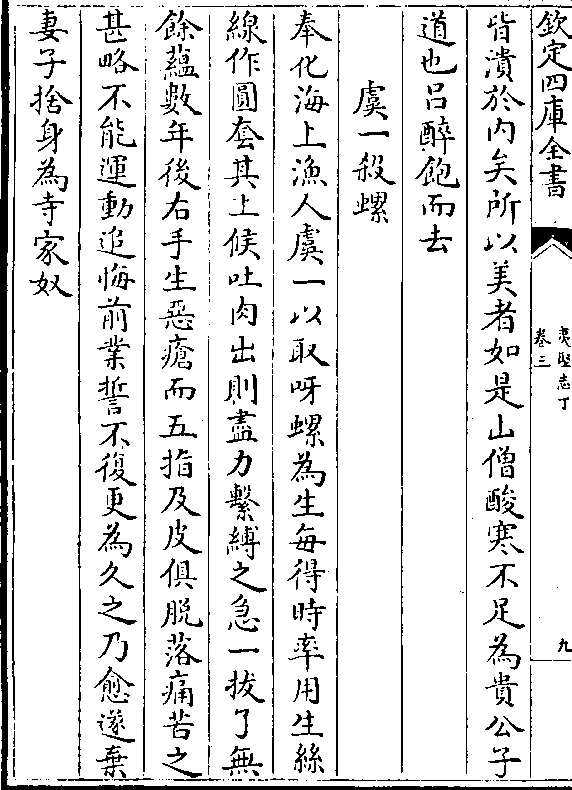 欽定四庫全書
夷堅志丁
卷三
九
皆潰於内矣所以美者如是山僧酸寒不足為貴公子
道也吕醉飽而去
虞一殺螺
奉化海上漁人虞一以取呀螺為生每得時率用生絲
線作圓套其上候吐肉出則盡力繫縛之急一拔了無
餘藴數年後右手生惡瘡而五指及皮俱脱落痛苦之
甚略不能運動追悔前業誓不復更為久之乃愈遂棄
妻子捨身為寺家奴